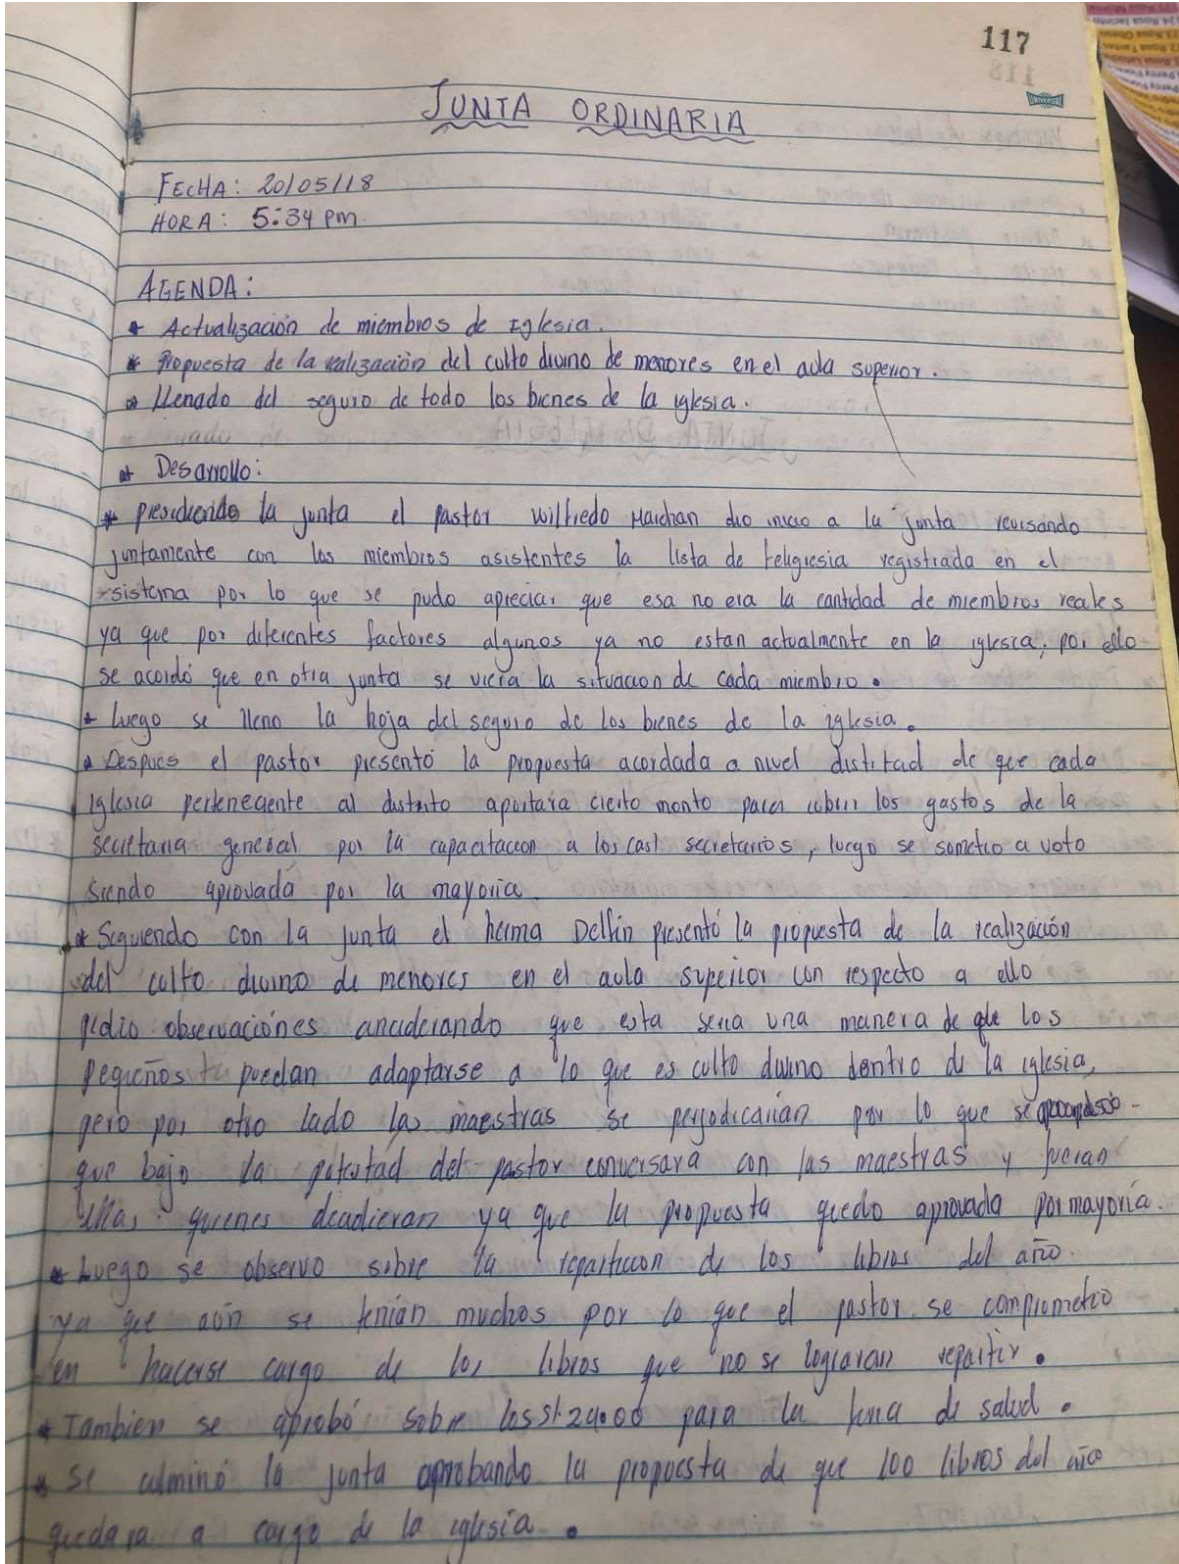 117
118
UNIVERSAL
JUNTA ORDINARIA
FECHA: 20/05/18
HORA: 5:34 pm.
AGENDA:
* Actualización de miembros de Iglesia.
* Propuesta de la realización del culto divino de menores en el aula superior.
* Llenado del seguro de todo los bienes de la iglesia.
* Desarrollo:
* presidiendo la junta el pastor Wilfredo Marchan dio inicio a la junta revisando
juntamente con los miembros asistentes la lista de feligresia registrada en el
sistema por lo que se pudo apreciar que esa no era la cantidad de miembros reales
ya que por diferentes factores algunos ya no estan actualmente en la iglesia, por ello
se acordó que en otra junta se viera la situacion de cada miembro.
* Luego se lleno la hoja del seguro de los bienes de la iglesia.
* Despues el pastor presentó la propuesta acordada a nivel distrital de que cada
iglesia perteneciente al distrito aportara cierto monto para cubrir los gastos de la
secretaria general por la capacitacion a los secretarios, luego se sometio a voto
siendo aprovada por la mayoria
* Seguiendo con la junta el herma Delfin presentó la propuesta de la realización
del culto divino de menores en el aula superior con respecto a ello
pidio observaciónes que esta seria una manera de que los
pequeños puedan adaptarse a lo que es culto divino dentro de la iglesia,
pero por otro lado las maestras se perjodicarian por lo que se
que bajo la potestad del pastor conversara con las maestras y fueran
ellas quienes deadieran ya que la propuesta quedo aprovada por mayoría.
* Luego se observo sobre la reparticion de los libros del año
ya que aún se tenían muchos por lo que el pastor se comprometio
en hacerse cargo de los libros que no se lograran repartir.
* Tambien se aprobó sobre los S/.24.00 para la feria de salud.
* Se culminó la junta aprobando la propuesta de que 100 libros del año
quedara a cargo de la iglesia.